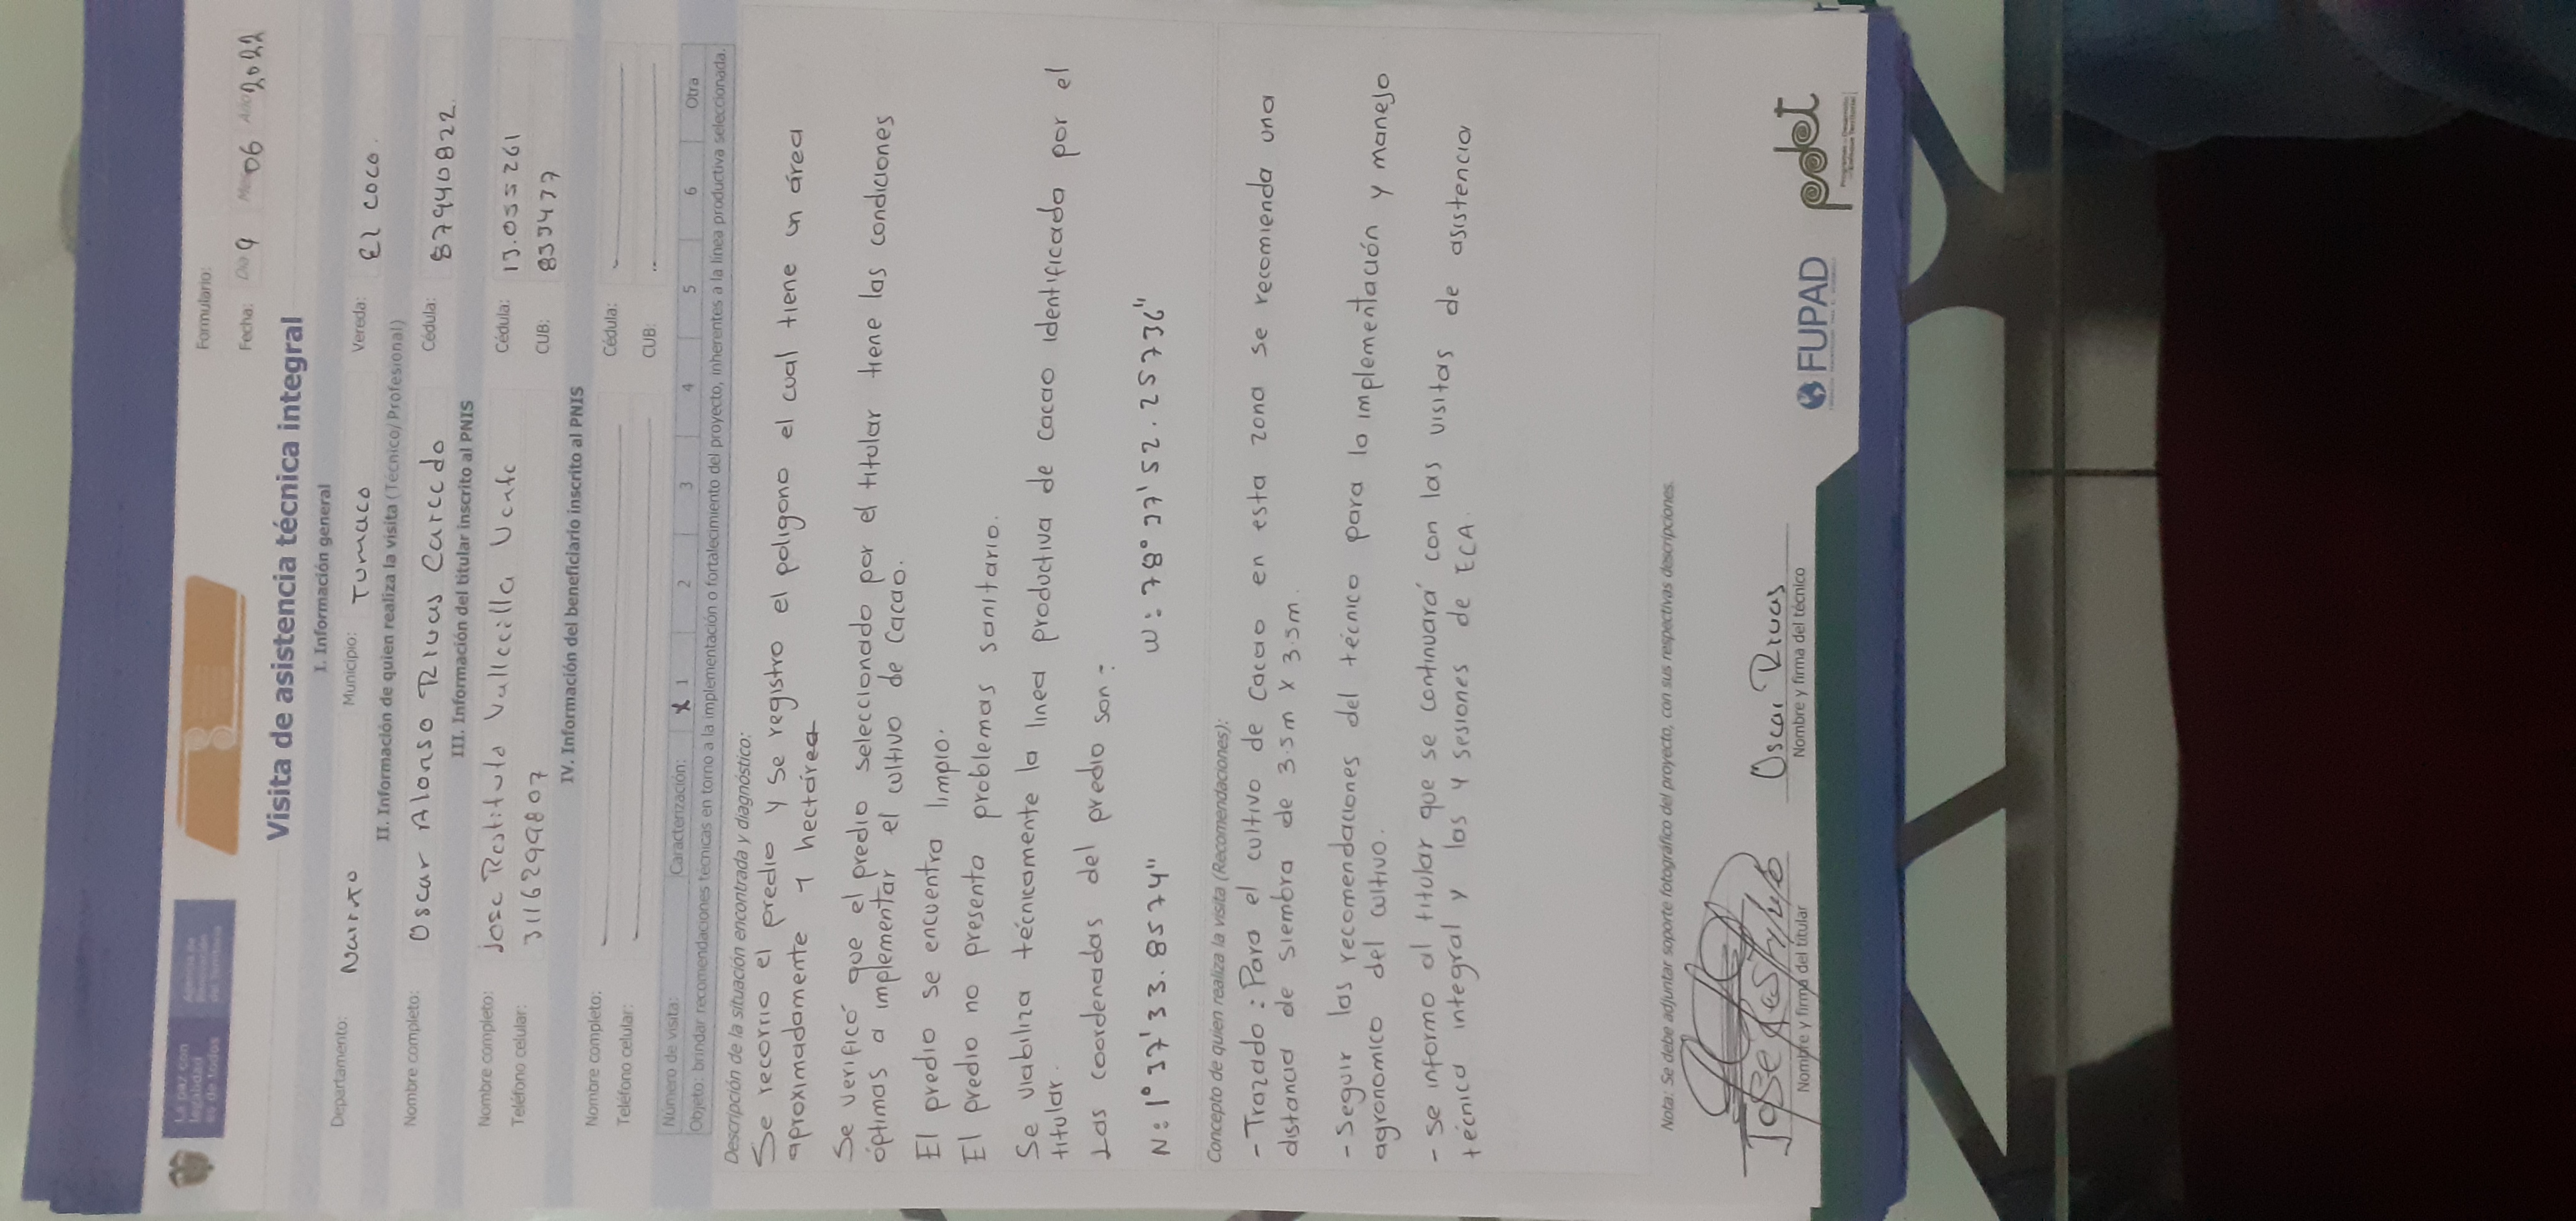 La paz con
legalidad
es de todos
Agencia de
Renovación
del Territorio
Formulario:
Fecha: Día 9 Mes 06 Año 2022
Visita de asistencia técnica integral
I. Información general
Departamento: Nariño Municipio: Tumaco Vereda: El coco.
II. Información de quien realiza la visita (Técnico/Profesional)
Nombre completo: Oscar Alonso Rivas Caicedo Cédula: 879440822.
III. Información del titular inscrito al PNIS
Nombre completo: Jose Restituto Vallecilla Vente Cédula: 13.055261
Teléfono celular: 3116299807 CUB: 833477
IV. Información del beneficiario inscrito al PNIS
Nombre completo: Cédula:
Teléfono celular: CUB:
Número de visita: Caracterización: X 1 2 3 4 5 6 Otra
Objeto: brindar recomendaciones técnicas en torno a la implementación o fortalecimiento del proyecto, inherentes a la línea productiva seleccionada.
Descripción de la situación encontrada y diagnóstico:
Se recorrio el predio y se registro el poligono el cual tiene un área
aproximadamente 1 hectárea
Se verificó que el predio seleccionado por el titular tiene las condiciones
óptimas a implementar el cultivo de Cacao.
El predio se encuentra limpio.
El predio no presenta problemas sanitario.
Se viabiliza técnicamente la linea productiva de cacao identificado por el
titular.
Las coordenadas del predio son:
N: 1° 37' 33.8574" W: 78° 37' 52.25736"
Concepto de quien realiza la visita (Recomendaciones):
- Trazado: Para el cultivo de Cacao en esta zona se recomienda una
distancia de siembra de 3.5m x 3.5m.
- Seguir las recomendaciones del técnico para la implementación y manejo
agronomico del cultivo.
- Se informo al titular que se continuará con las visitas de asistencia
técnica integral y las 4 sesiones de ECA.
Nota: Se debe adjuntar soporte fotográfico del proyecto, con sus respectivas descripciones.
Jose Restituto Oscar Rivas
Nombre y firma del titular Nombre y firma del técnico
FUPAD
pdet